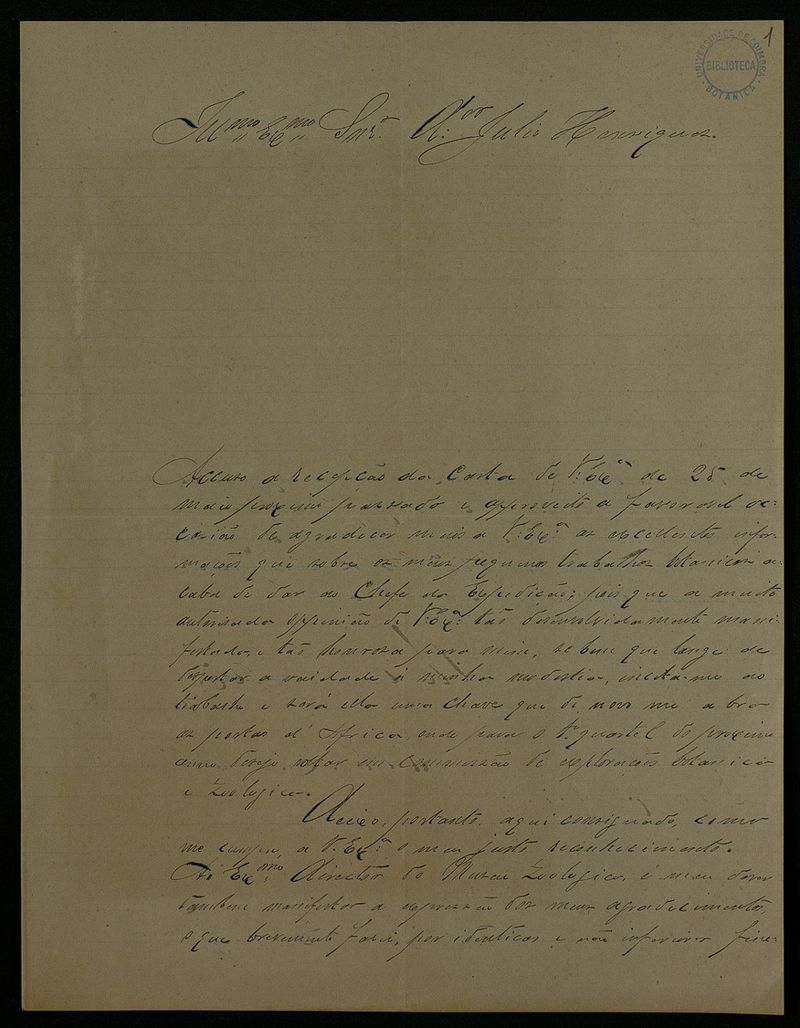 1
UNIVERSIDADE DE COIMBRA
BIBLIOTECA
BOTANICA
Illmo Exmo Snr. Dor Julio Henriques.
Accuso a recepção da Carta de V. Exa de 25 de
maio proximo passado e aproveito a favoravel oc-
casião de agradecer mais a V. Exa as excellentes infor-
mações que sobre os meus pequenos trabalhos botanicos a-
caba de dar ao Chefe da Expedição; pois que a muito
autorisada oppinião de V. Exa tão desenvolvidamente mani-
festada, e tão honrosa para mim, se bem que longe de
despertar a vaidade á minha modestia, incita-me ao
trabalho e será ella uma chave que de novo me abra
as portas d'Africa, onde para o 1º quartel do proximo
anno desejo voltar em commissão de explorações botanica
e zoologica.
Deixo, portanto, aqui consignado, como
me cumpre, a V. Exa o meu justo reconhecimento.
Ao Exmo Director do Museu Zoologico, é meu dever
tambem manifestar a expressão dos meus agradecimentos,
o que brevemente farei, por identicos e não inferiores fine-